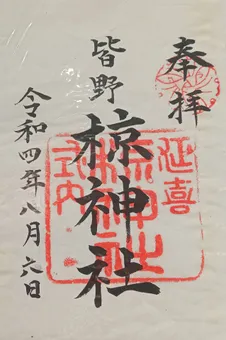 奉拝
皆野
椋神社
令和四年八月六日
延喜
式内
椋神社